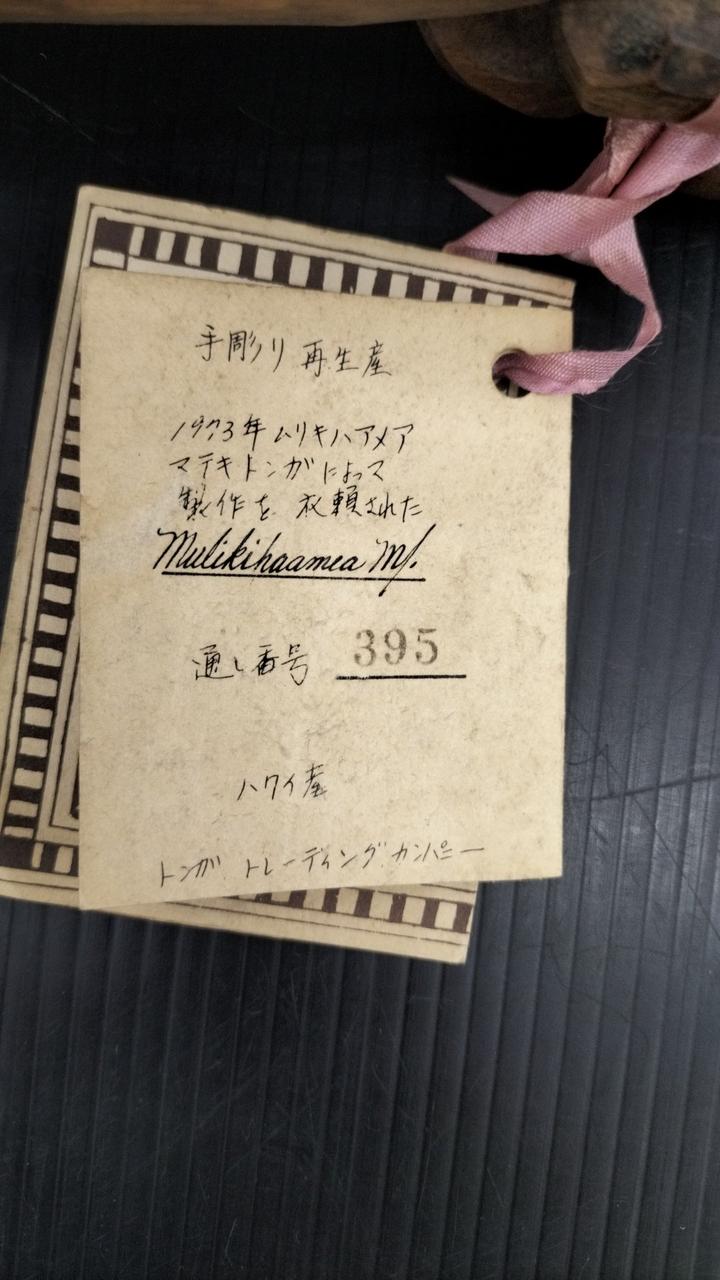 手彫り 再生産
1973年 ムリキハアメア
マテキトンガによって
製作を 依頼された
Mulikihaamea M/.
通し番号 395
ハワイ産
トンガ トレーディング カンパニー